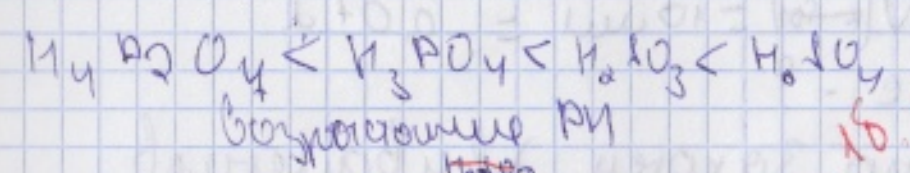 H₄P₂O₇ < H₃PO₄ < H₂SO₃ < H₂SO₄
возрастание PH
1б